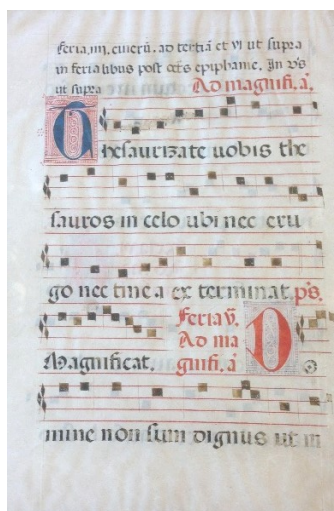 feria .iiii. cinerū. ad tertiā et vi ut supra
in ferialibus post oct̄s epiphanie. In v̄s
ut supra Ad magnifi. ā.
Thesaurizate uobis the
sauros in celo ubi nec eru
go nec tinea exterminat. p̄s.
Magnificat. Feria v̄. Ad magnifi. ā
Domine non sum dignus ut in